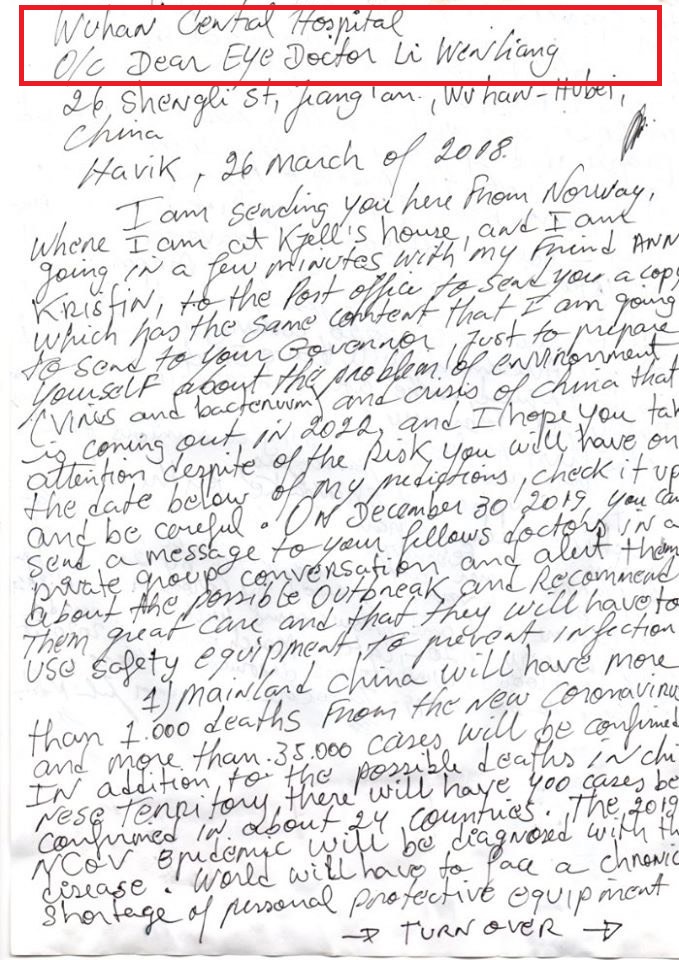 Wuhan Central Hospital
O/c Dear Eye Doctor Li Wenliang
26 Shengli St, Jiang'an., Wuhan-Hubei,
China
Havik, 26 March of 2018.
I am sending you here from Norway,
where I am at Kjell's house, and I am
going in a few minutes with my friend ANN
KRISTIN, to the Post office to send you a copy
which has the same content that I am going
to send to your Governor, Just to prepare
yourself about the problem of environment
(virus and bacterium) and crisis of China that
is coming out in 2022, and I hope you tak
attention despite of the Risk you will have on
the date below of my predictions, check it up
and be careful. ON December 30 2019, you can
send a message to your fellows doctors in a
private group conversation and alert them
about the possible Outbreak and Recommend
Them great care and that they will have to
use safety equipment to prevent infection
1) Mainland China will have more
than 1.000 deaths From the New Coronaviru
and more than 35.000 cases will be confirmed
IN addition to the possible deaths in chi
nese Territory, there will have 400 cases be
confirmed in about 24 countries. The 2019
NCoV Epidemic will be diagnosed with th
disease. World will have to face a chronic
shortage of personal protective equipment
→ TURN OVER →